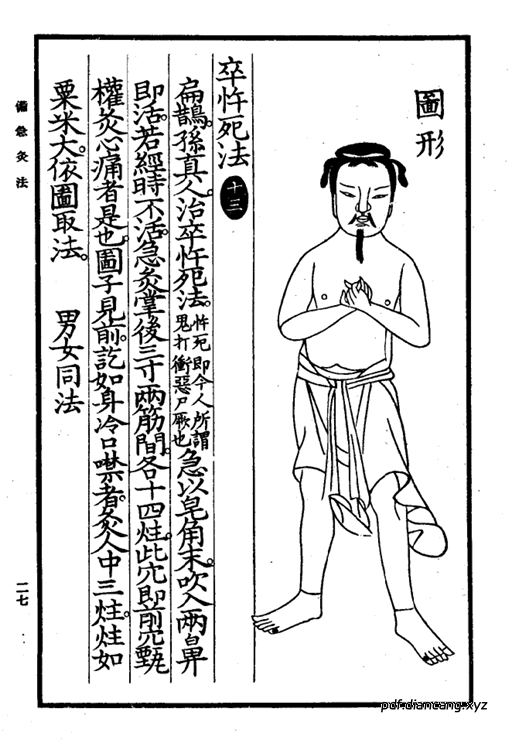 圖形
卒忤死法 十三
扁鵲。孫真人治卒忤死法。忤死即今人所謂鬼打衝惡尸厥也急以皂角末。吹入兩鼻
即活。若經時不活。急灸掌後三寸兩筋間。各十四炷。此穴即前穴甄
權灸心痛者是也。圖子見前。訖如身冷口噤者。灸人中三炷。炷如
粟米大。依圖取法。 男女同法
備急灸法
二七
pdf.diancang.xyz